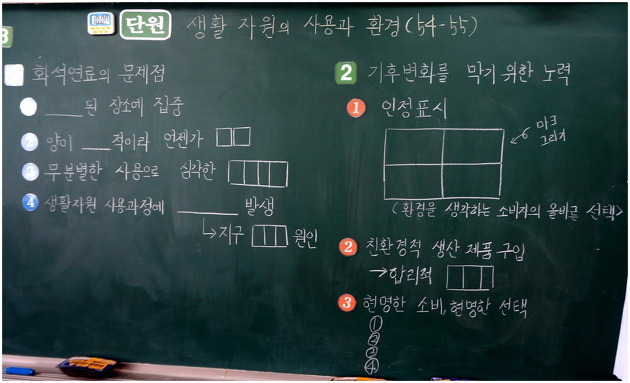 3 단원 생활 자원의 사용과 환경(54-55)
화석연료의 문제점
____된 장소에 집중
2 양이 ___적이라 언젠가 □□
3 무분별한 사용으로 심각한 □□□□
4 생활자원 사용과정에 ______ 발생
↳지구 □□□ 원인
2 기후변화를 막기 위한 노력
1 인정표시
마크
그리기
(환경을 생각하는 소비자의 올바른 선택>
2 친환경적 생산 제품 구입
→합리적 □□□
3 현명한 소비, 현명한 선택
①
②
③
④